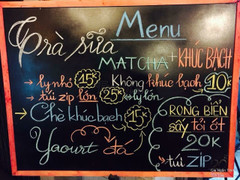 Menu
Trà sữa
MATCHA + KHÚC BẠCH
→ ly nhỏ 15K Không khúc bạch 10K
→ túi zip lớn 25K ly lớn
→ Chè khúc bạch 15K
RONG BIỂN
SẤY TỎI ỚT
20K
→ túi ZIP
Yaourt đá